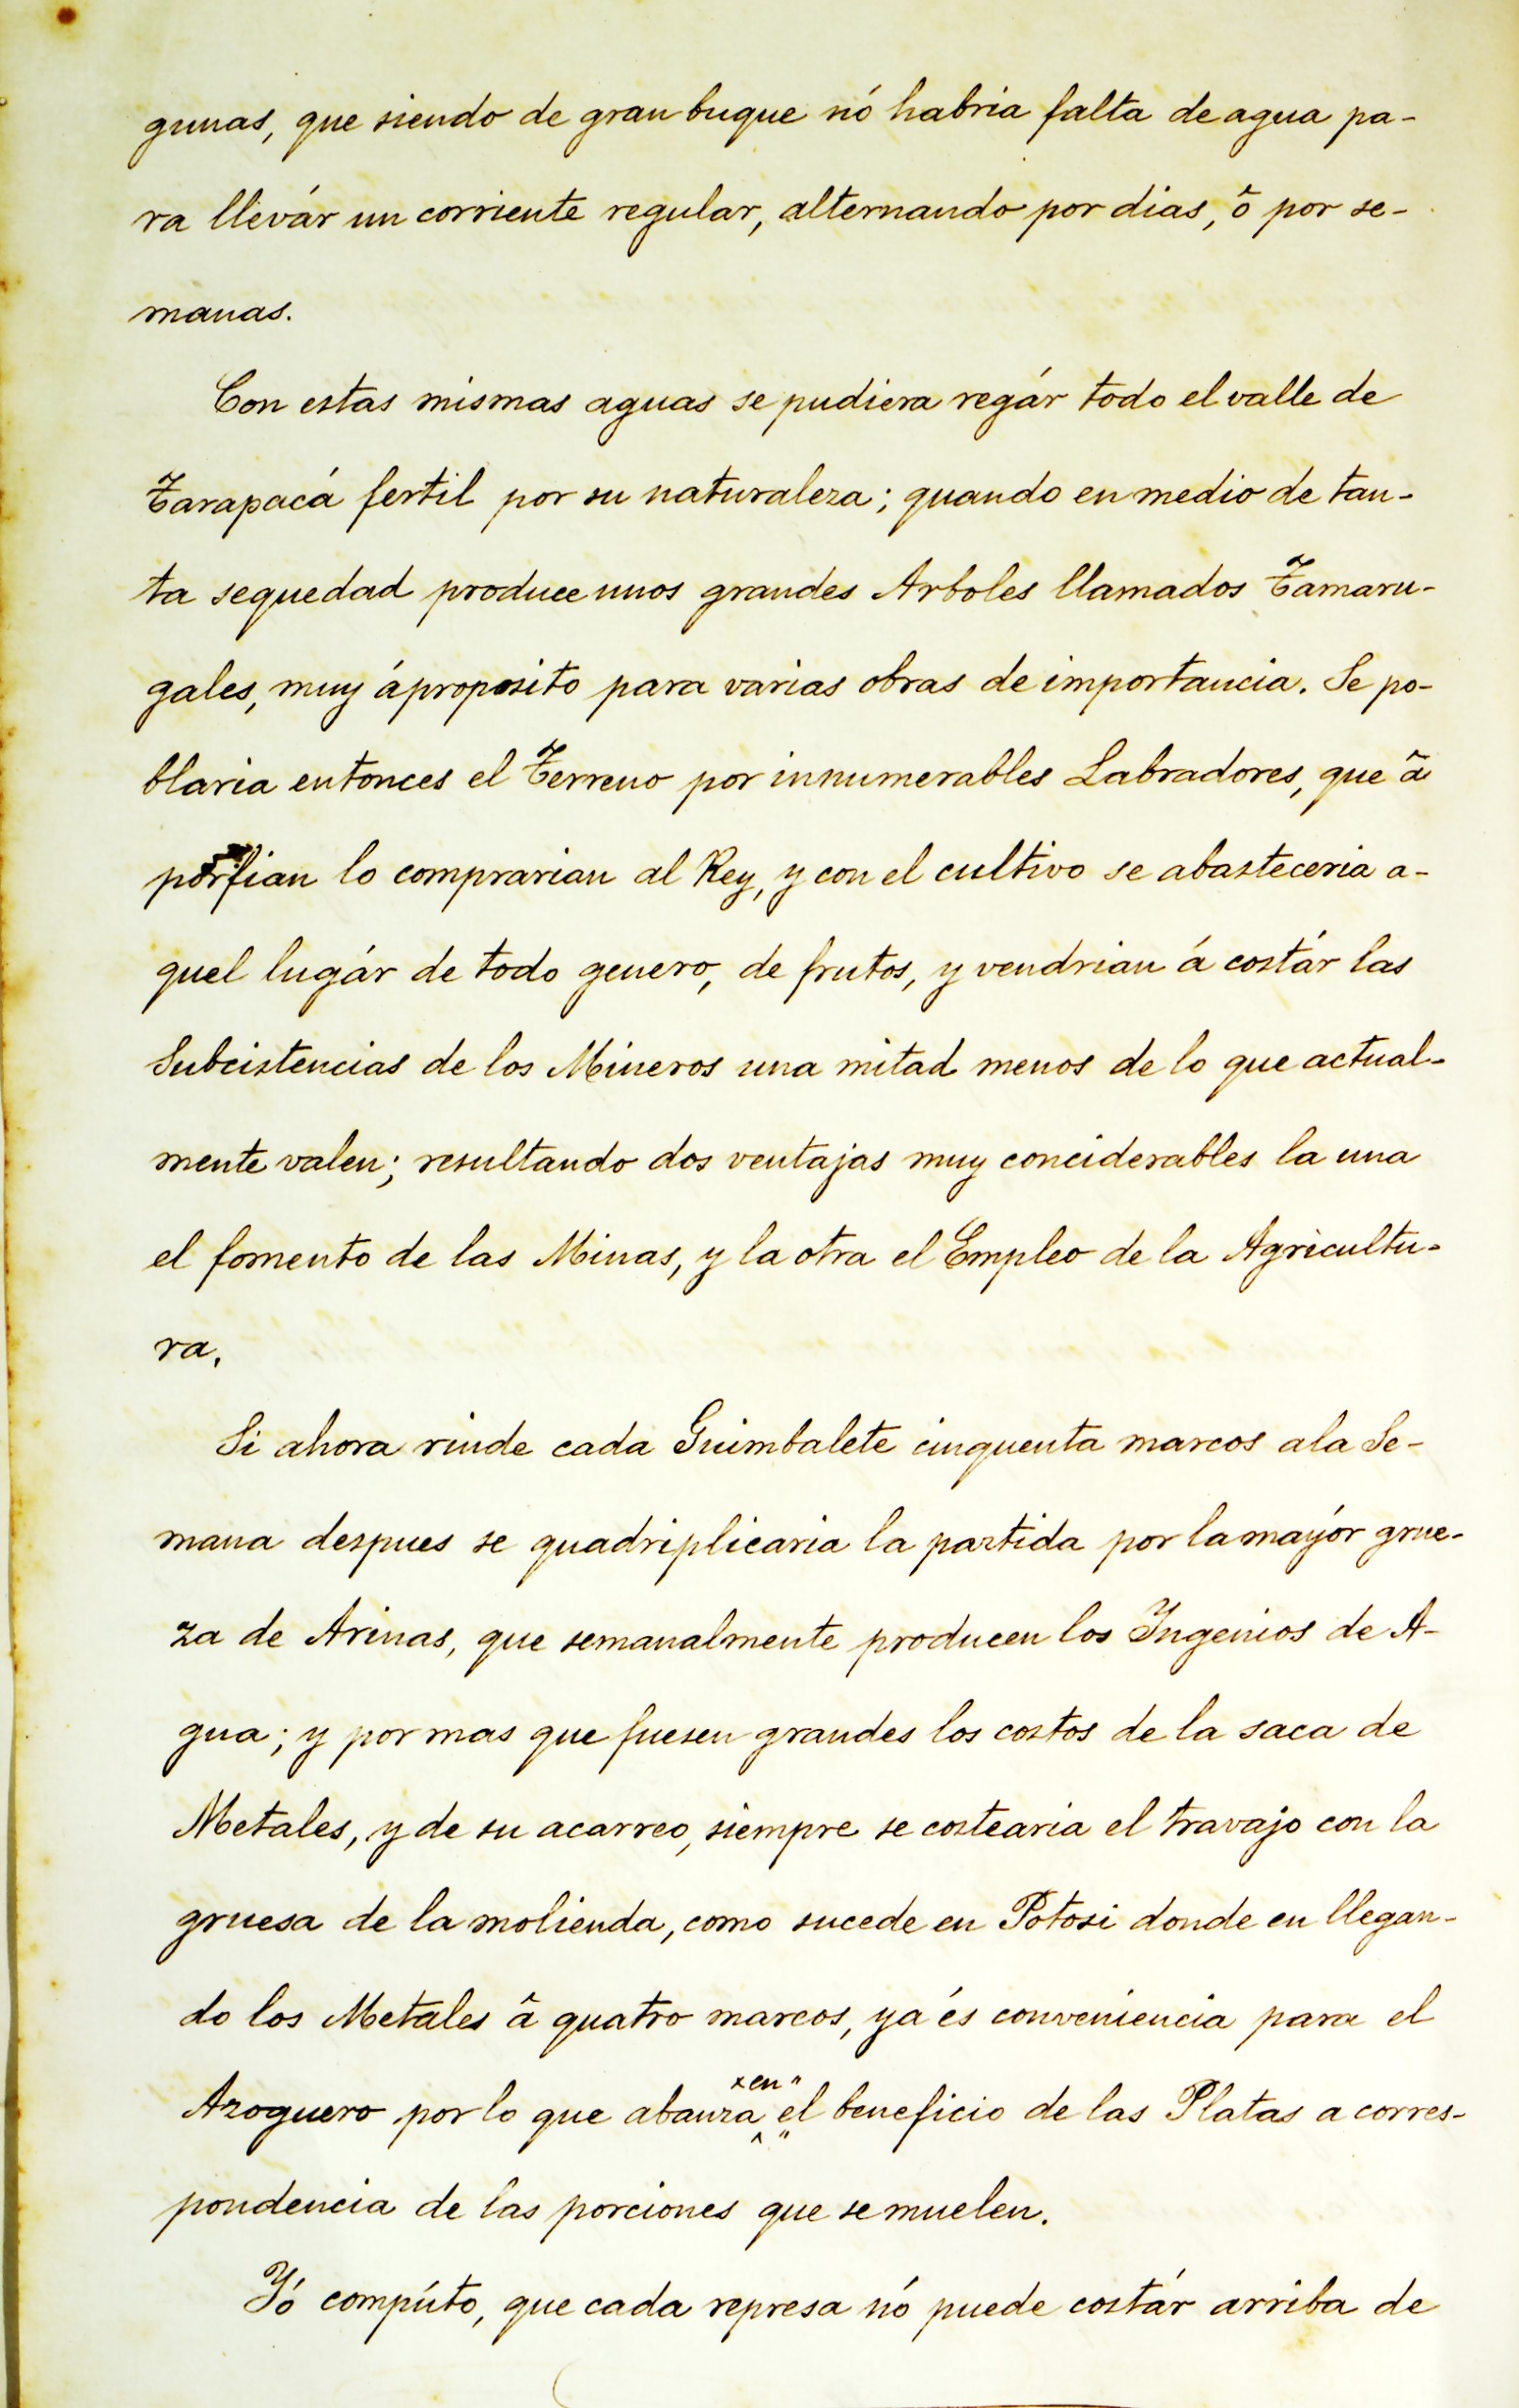 gunas, que siendo de gran buque nó habria falta de agua pa-
ra llevár un corriente regular, alternando por dias, ô por se-
manas.
Con estas mismas aguas se pudiera regár todo el valle de
Tarapacá fertil por su naturaleza; quando en medio de tan-
ta sequedad produce unos grandes Arboles llamados Tamaru-
gales, muy áproposito para varias obras de importancia. Se po-
blaria entonces el Terreno por innumerables Labradores, que â
porfian lo comprarian al Rey, y con el cultivo se abasteceria a-
quel lugár de todo genero, de frutos, y vendrian á costár las
Subcistencias de los Mineros una mitad menos de lo que actual-
mente valen; resultando dos ventajas muy conciderables la una
el fomento de las Minas, y la otra el Empleo de la Agricultu-
ra.
Si ahora rinde cada Guimbalete cinquenta marcos ala Se-
mana despues se quadriplicaria la partida por la mayór grue-
za de Arinas, que semanalmente producen los Ingenios de A-
gua; y por mas que fuesen grandes los costos de la saca de
Metales, y de su acarreo, siempre se costearia el travajo con la
gruesa de la molienda, como sucede en Potosi donde en llegan-
do los Metales â quatro marcos, ya és conveniencia para el
xen"
Azoguero por lo que abanza ^ el beneficio de las Platas a corres-
pondencia de las porciones que se muelen.
Yó compúto, que cada represa nó puede costár arriba de